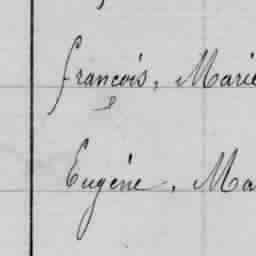 François, Marie
Eugène, Ma